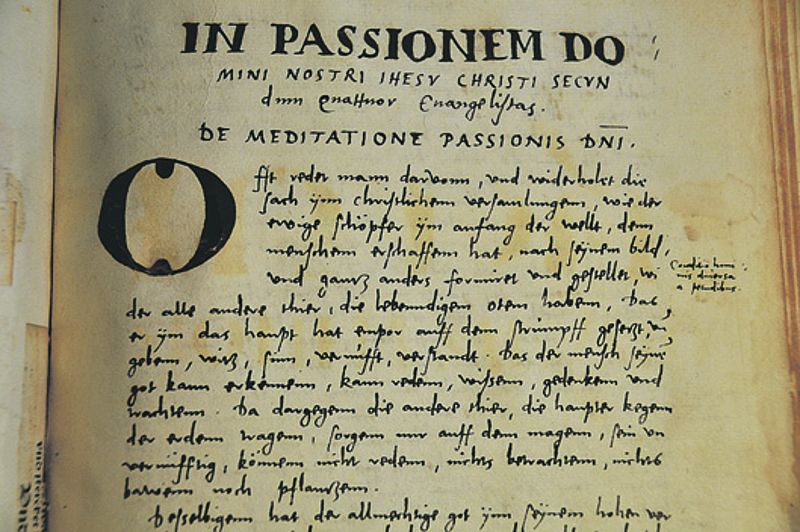 IN PASSIONEM DO
MINI NOSTRI IHESV CHRISTI SECVN
dum Quattuor Euangelistas.
DE MEDITATIONE PASSIONIS DNI.
Offt redet mann darvonn, und widerholet die
sach ynn christlichenn versamlungenn, wie der
ewige schöpfer ym anfang der wellt, denn
menschenn erschaffenn hat, nach seynem bild,
und gantz anders formiret und gestellet, wi
der alle andere thier, die lebenndigenn otem habenn, Das
er ym das haupt hat empor auff denn strumpff gesetzt, vn
gebenn, witz, sinn, vernufft, verstandt. Das der mensch seynen
got kann erkennenn, kann redenn, wissenn, gedenckenn und
trachtenn. Da dargegenn die andere thier, die haupter kegenn
der erdenn tragenn, sorgenn nur auff denn magenn, sein vn
vernüfftig, könnenn nicht redenn, nichts betrachtenn, nichts
bawenn noch pflantzenn.
Desselbigenn hat der allmechtige got ynn seynem hohen ver
Conditio homi
nis diversa
a pecudibus.